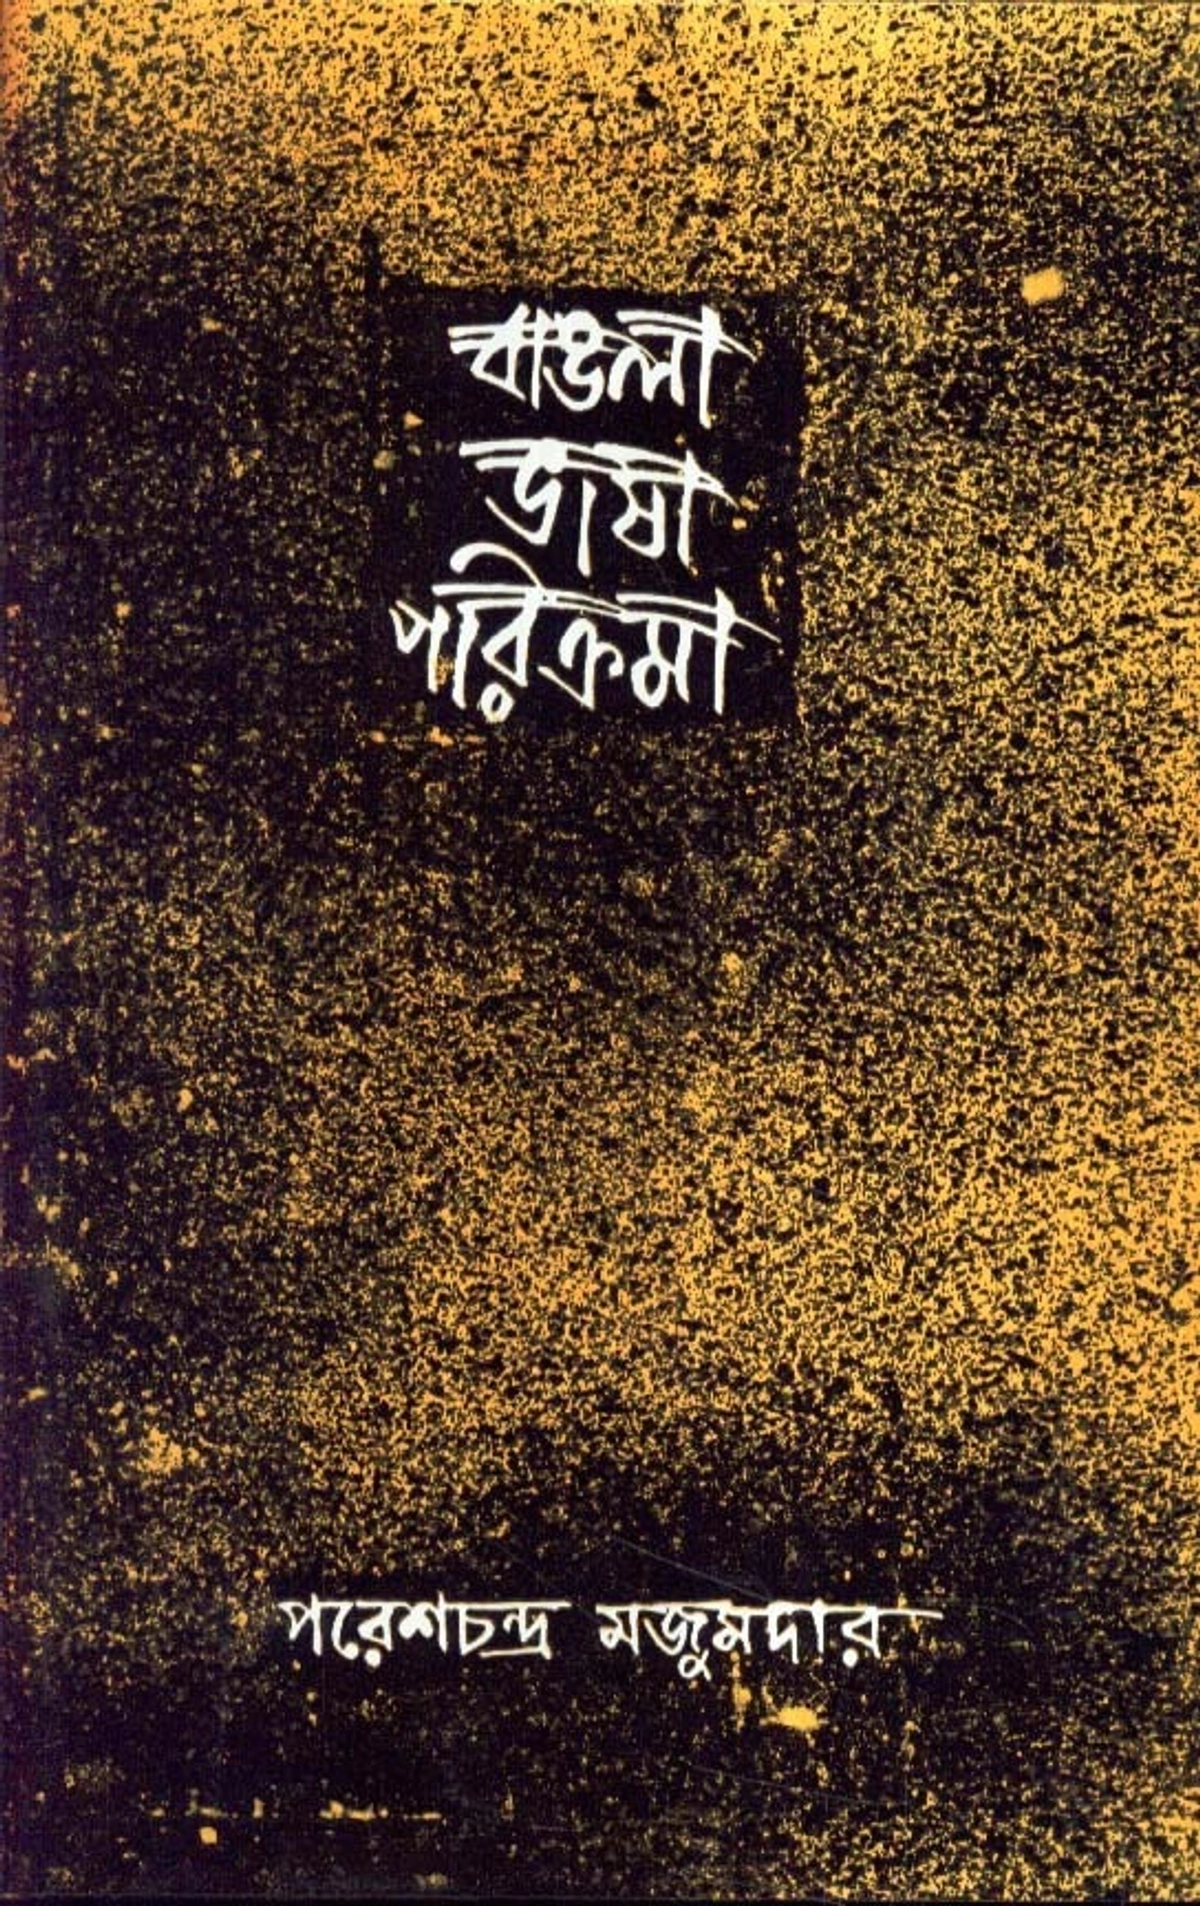 বাঙলা
ভাষা
পরিক্রমা
পরেশচন্দ্র মজুমদার